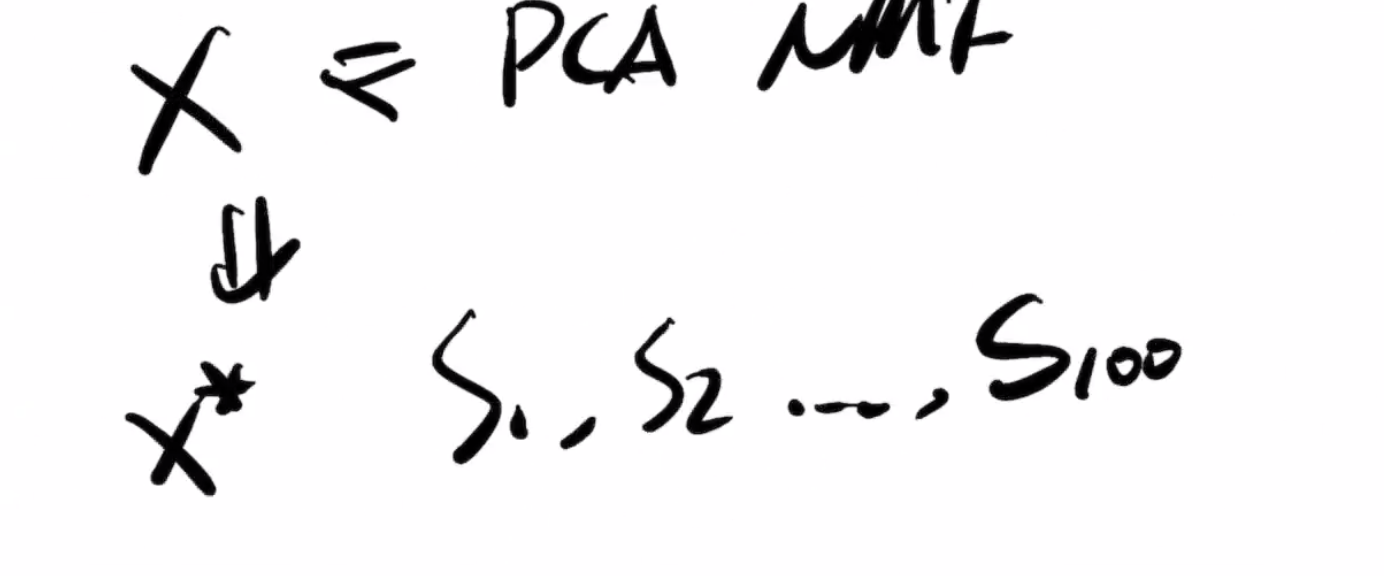 X ⇐ PCA NMF
⇓
X* S₁, S₂ ..., S₁₀₀